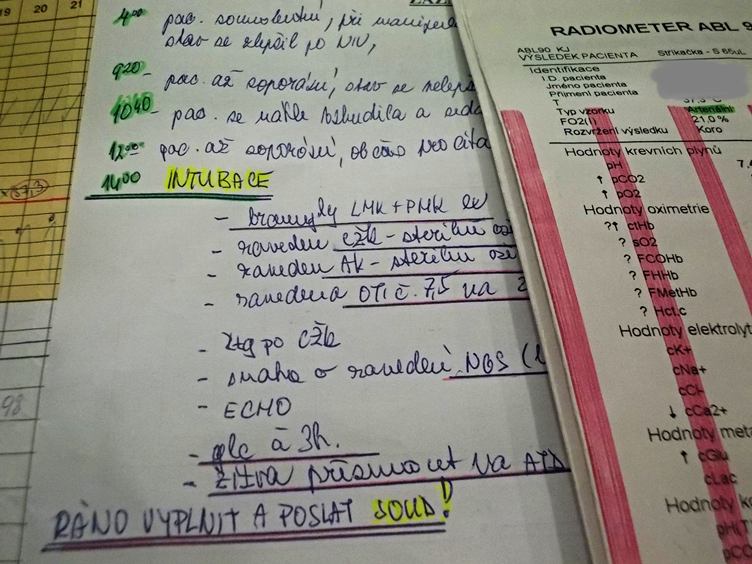 19 20 21
37,3
98
4:00 pac. somnolentní, při manipul
stav se zlepšil po NIV,
9:20 - pac. až soporózní, stav se nelepš
10:40 - pac. se náhle vzbudila a
12:00 pac. až soporózní, občas
14:00 INTUBACE
- LMK + PMK
- zaveden CŽK - sterilní
- zaveden AK - sterilní
- zavedena OTI č. 7,5 na 2
- rtg po CŽK
- snaha o zavedení NGS (
- ECHO
- glc à 3h.
- zítra přismout na
RÁNO VYPLNIT A POSLAT SOUD!
RADIOMETER ABL 9
ABL90 KJ
VÝSLEDEK PACIENTA Stříkačka - S 65uL
Identifikace
I.D. pacienta
Jméno pacienta
Příjmení pacienta
T 37,3 °C
Typ vzorku Arteriální
FO2(I) 21.0 %
Rozvržení výsledku Koro
Hodnoty krevních plynů
pH 7,
↑ pCO2
↑ pO2
Hodnoty oximetrie
?↑ ctHb
? sO2
? FCOHb
? FHHb
? FMetHb
? Hct,c
Hodnoty elektrolyt
cK+
cNa+
cCl-
↓ cCa2+
Hodnoty meta
↑ cGlu
cLac
Hodnoty k
pH(T
pCO